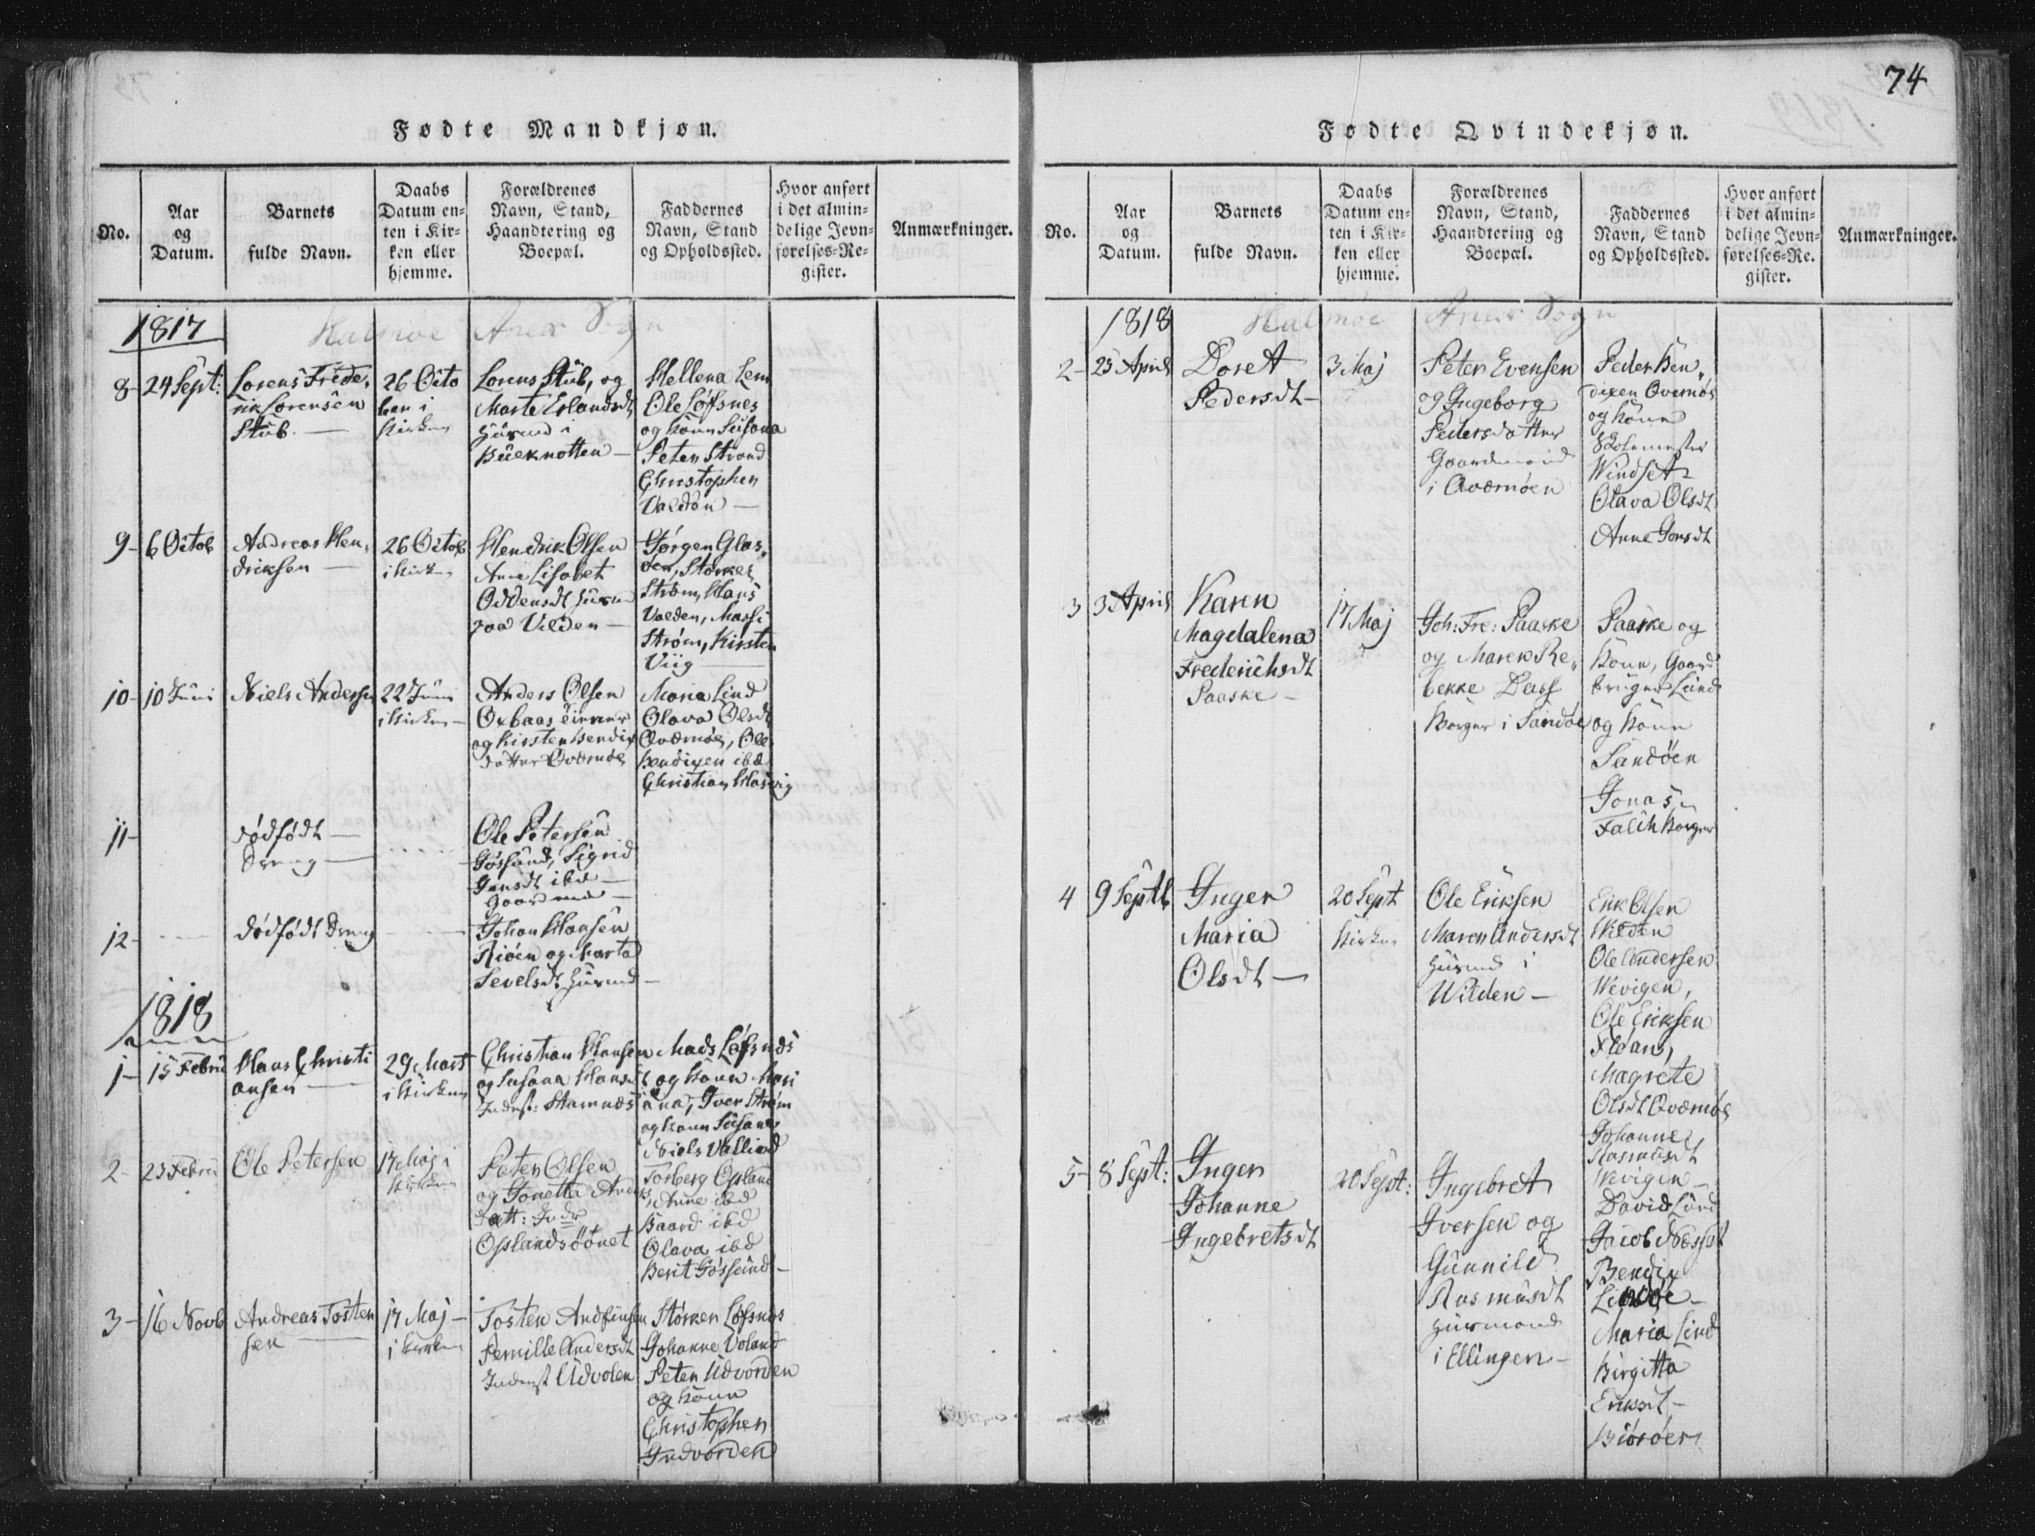 74
Fødte Mandkjøn.
No.
Aar
og
Datum.
Barnets
fulde Navn.
Daabs
Datum en-
ten i Kir-
ken eller
hjemme.
Forældrenes
Navn, Stand,
Haandtering og
Boepæl.
Faddernes
Navn, Stand
og Opholdssted.
Hvor anført
i det almin-
delige Jevn-
førelses-Re-
gister.
Anmærkninger.
1817
Halmøe Anex Sogn
8-
24 Sept:
Lorens Frede-
rik Lorensen
Stub.
26 Octo
ber i
Kirken
Lorens Stub, og
Marte Erlandsdt
Huusmd i
Bueknotten
Hellena Lem
Ole Løfsnes
og Kone Susana
Peter Strand
Christopher
Valden
9-
6 Octob
Andreas Hen-
driksen
26 Octob
i Kirken
Hendrik Olsen
Ane Lisabet
Oddensdt Huusm
paa Vilden
Jørgen Glas-
øen, Størker
Strøm, Hans
Valden, Massi
Strøm, Kirsten
Viig
10-
10 Juni
Niels Andersen
22 Juni
i Kirken
Anders Olsen
Oxbaas
og Kirsten Bendix
datter Qværnøe
Maria Lind
Olava Olsdt
Qværnøe, Ole
Bendixen ibd
Christian Hasvig
11-
dødfødt
Dreng
Ole Petersen
Gøssund, Sigrid
Jensdt ibd
Gaardmd
12-
dødfødt Dreng
Johan Hansen
Riøen og Marta
Sevelsdt Huusmd
1818
1-
15 Febru
Hans Christi
ansen
29 Marts
i Kirken
Christian Hansen
og Susana Hansdt
Inderst: Stamnæs
Mads Løfsnæs
og Kone Mari
ana, Iver Strøm
og Kone Susane
Niels Valland
2-
23 Febru
Ole Petersen
17 Maj i
Kirken
Peter Olsen
og Jonetta Anders
datt: Inds
Opslandsöÿnet
Torberg Opsland
Anne ibd
Baard ibd
Olava ibd
Berit Gøssund
3-
16 Novb
Andreas Tosten
sen
17 Maj
i Kirken
Tosten Andfinsen
Pernille Andersdt
Inderst Udvolen
Størker Løfsnæs
Johanne Voland
Peter Udvorden
og Kone
Christopher
Indvorden
Fødte Qvindekjøn.
No.
Aar
og
Datum.
Barnets
fulde Navn.
Daabs
Datum en-
ten i Kir-
ken eller
hjemme.
Forældrenes
Navn, Stand,
Haandtering og
Boepæl.
Faddernes
Navn, Stand
og Opholdssted.
Hvor anført
i det almin-
delige Jevn-
førelses-Re-
gister.
Anmærkninger.
1818
Halmøe Anex Sogn
2-
25 April
Doret
Pedersdt
3 Maj
Peter Evensen
og Ingeborg
Pedersdatter
Gaardmand
i Qværnøen
Peder Ben-
dixen Qværnøe
og Kone
Skolemester
Windset
Olava Olsdt
Anne Jonsdt
3
3 April
Karen
Magdalena
Frederichsdt
Paaske
17 Maj
Joh: Fre: Paaske
og Maren Re-
bekke Dass
Borger i Sandøe
Paaske og
Kone, Gaard
bruger Lund
og Kone
Sandøen
Jonas
Falch Borger
4
9 Septb
Inger
Maria
Olsdt
20 Sept
Kirken
Ole Eriksen
Maren Andersdt
Huusmd i
Wilden
Erik Olsen
Wilden
Ole Andersen
Wevigen,
Ole Eriksen
Floan,
Magrete
Olsdt Qværnøe
Johanne
Rasmusdt
Wevigen
5-
8 Sept:
Inger
Johanne
Ingebretsdt
20 Sept:
Ingebret
Iversen og
Gunnild
Rasmusdt
Huusmand
i Ellingen
David Lund
Jacob Næsset
Bendix
Lindøe
Maria Lind
Birgitta
Eriksdt
Biørøer